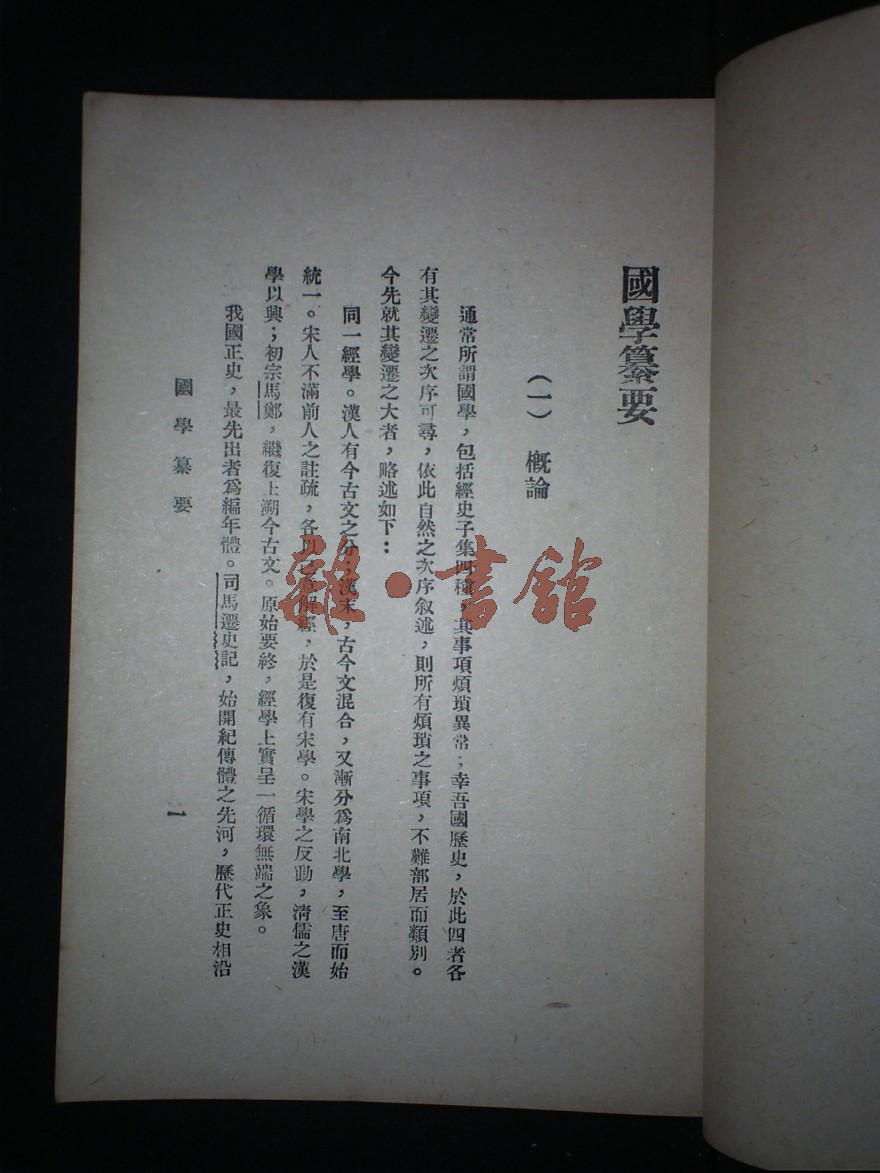 國學纂要
(一) 概論
通常所謂國學，包括經史子集四種，其事項煩瑣異常；幸吾國歷史，於此四者各
有其變遷之次序可尋，依此自然之次序叙述，則所有煩瑣之事項，不難部居而類別。
今先就其變遷之大者，略述如下：
同一經學。漢人有今古文之分；漢末，古今文混合，又漸分爲南北學，至唐而始
統一。宋人不滿前人之註疏，各以己意解經，於是復有宋學。宋學之反動，清儒之漢
學以興；初宗馬鄭，繼復上溯今古文。原始要終，經學上實呈一循環無端之象。
我國正史，最先出者爲編年體。司馬遷史記，始開紀傳體之先河，歷代正史相沿
國學纂要
一
雜·書館